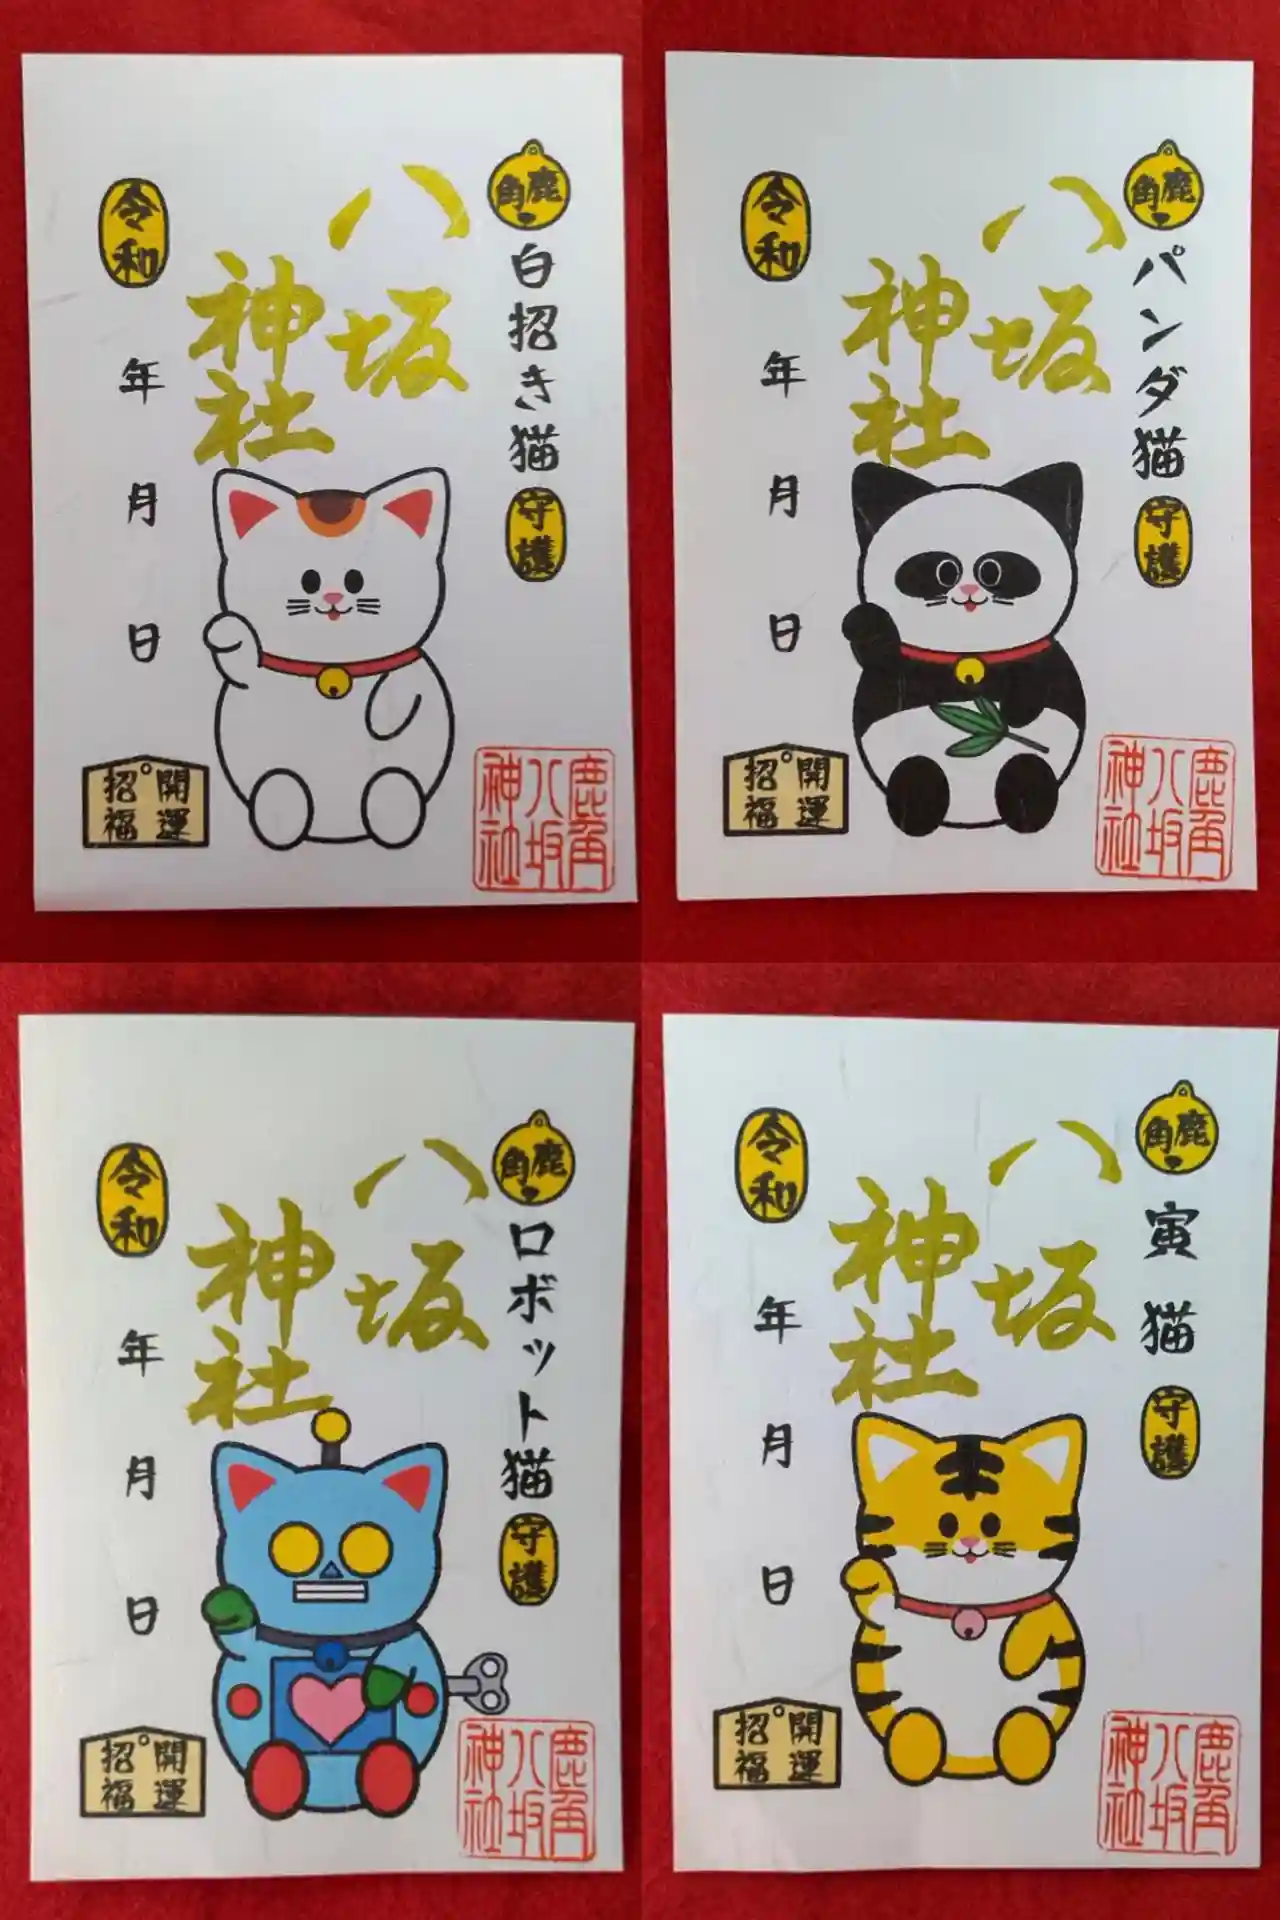 鹿角
白招き猫
守護
八坂
神社
令和
年
月
日
開運
招福
鹿角
八坂
神社
鹿角
パンダ猫
守護
八坂
神社
令和
年
月
日
開運
招福
鹿角
八坂
神社
鹿角
ロボット猫
守護
八坂
神社
令和
年
月
日
開運
招福
鹿角
八坂
神社
鹿角
寅猫
守護
八坂
神社
令和
年
月
日
開運
招福
鹿角
八坂
神社